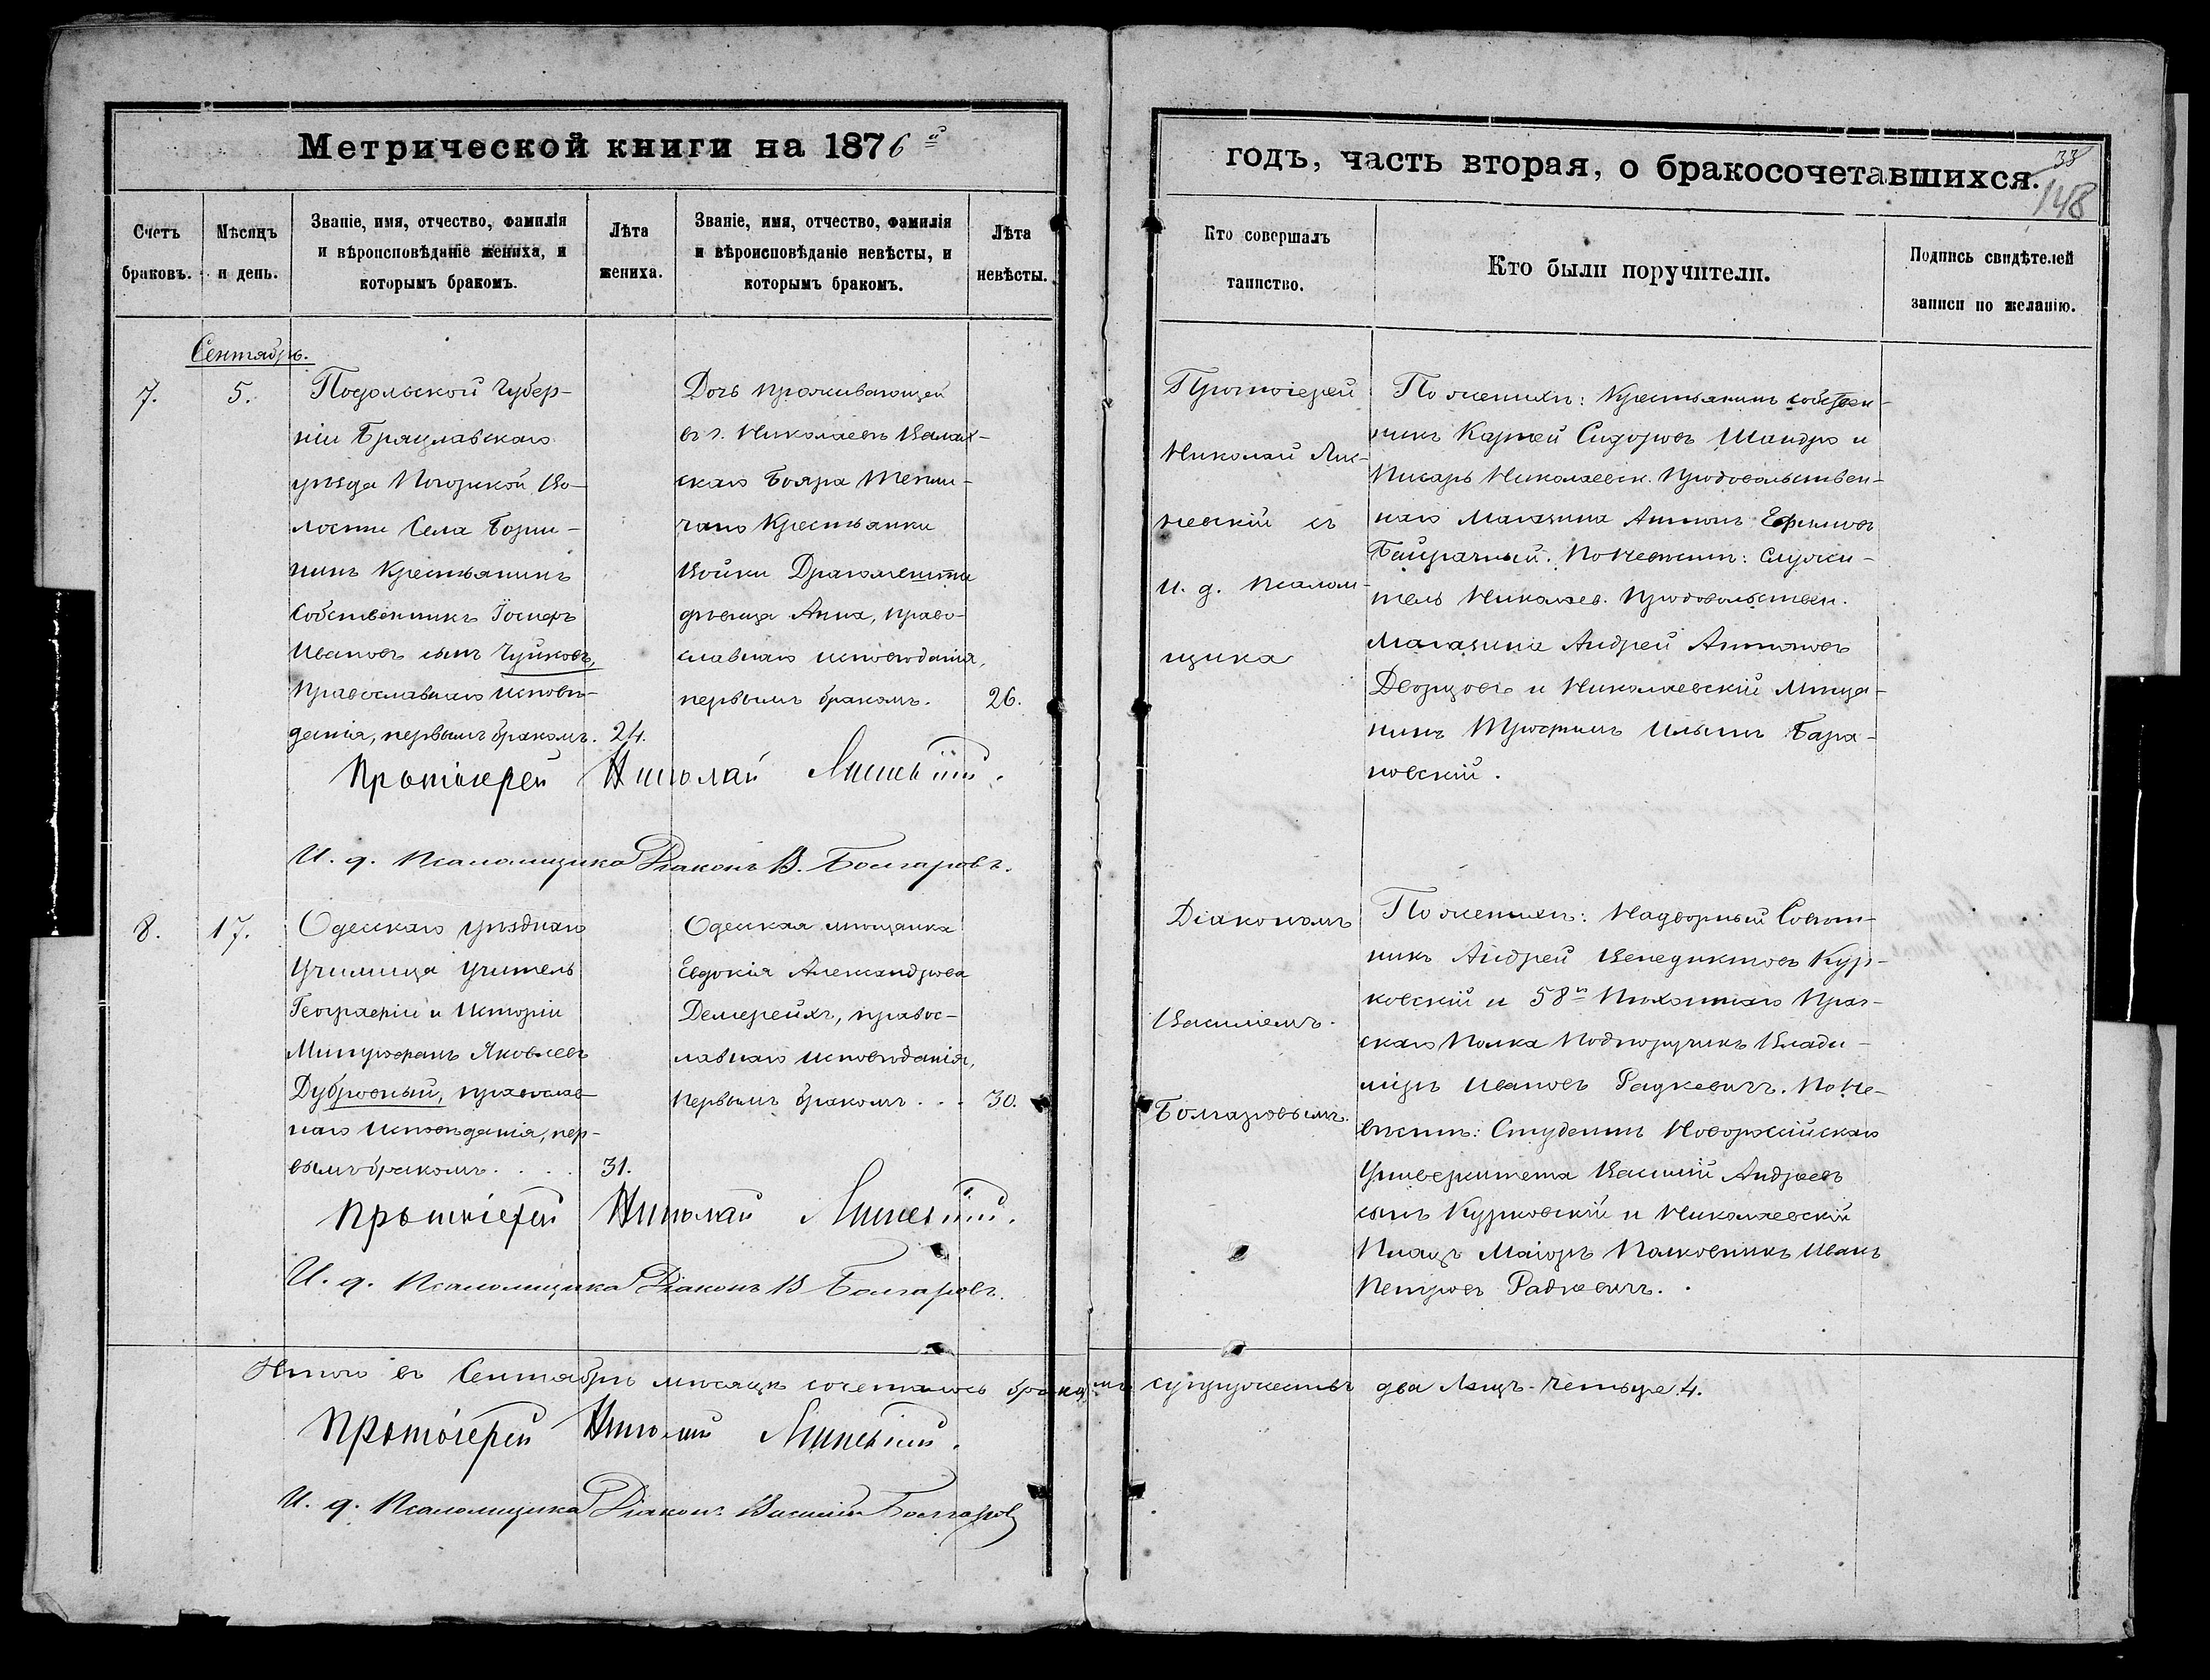 Метрической книги на 1876й
годъ, часть вторая, о бракосочетавшихся.
33
148
Счетъ браковъ.
Мѣсяцъ и день.
Званіе, имя, отчество, фамилія
и вѣроисповѣданіе жениха, и
которымъ бракомъ.
Лѣта жениха.
Званіе, имя, отчество, фамилія
и вѣроисповѣданіе невѣсты, и
которымъ бракомъ.
Лѣта невѣсты.
Кто совершалъ
таинство.
Кто были поручители.
Подпись свидѣтелей
записи по желанію.
Сентябрь.
7.
5.
Подольской Губер-
ніи Брацлавскаго
уѣзда Во-
лости Села
Крестьянинъ
Собственникъ Іосифъ
Ивановъ сынъ Чуйковъ,
Православнаго исповѣ-
данія, первымъ бракомъ.
24.
Дочь проживающей
въ г. Николаевѣ Валах-
скаго Бояра
Крестьянки
Войки
дѣвица Анна, право-
славнаго исповѣданія,
первымъ бракомъ.
26.
Протоіерей
Николай
съ
И. д. Псалом-
щика
По женихѣ: Крестьянинъ собствен-
никъ Карпей Сидоровъ Шандро и
Писарь Николаевск. Продовольствен-
наго Магазина Антонъ Ефимовъ
Байрачный. По Невѣстѣ: Служи-
тель Николаев. Продовольствен.
Магазина Андрей Антоновъ
Дворцовъ и Николаевскій Мѣща-
нинъ Трофимъ Ильинъ Бара-
новскій.
Протоіерей Николай
И. д. Псаломщика Діаконъ В. Болгаровъ.
8.
17.
Одесскаго уѣзднаго
Училища учитель
Географіи и Исторіи
Яковлевъ
Дубровный, православ-
наго исповѣданія, пер-
вымъ бракомъ . . . .
31.
Одесская мѣщанка
Евдокія Александрова
Демерейхъ, правос-
лавнаго исповѣданія,
первымъ бракомъ . . .
30.
Діакономъ
Василіемъ
Болгаровымъ.
По женихѣ: Надворный Совѣт-
никъ Андрей Венедиктовъ Кур-
ковскій и 58го Пѣхотнаго Праг-
скаго Полка Подпоручикъ Влади-
міръ Ивановъ Радкевичъ. По Не-
вѣстѣ: Студентъ Новороссійскаго
Университета Василій Андреевъ
сынъ Курковскій и Николаевскій
Плацъ Маіоръ Полковникъ Иванъ
Петровъ Радкевичъ.
Протоіерей Николай
И. д. Псаломщика Діаконъ В Болгаровъ.
Итого въ Сентябрѣ мѣсяцѣ сочеталось бракомъ супружествъ два Лицъ - четыре 4.
Протоіерей Николай
И. д. Псаломщика Діаконъ Василій Болгаровъ